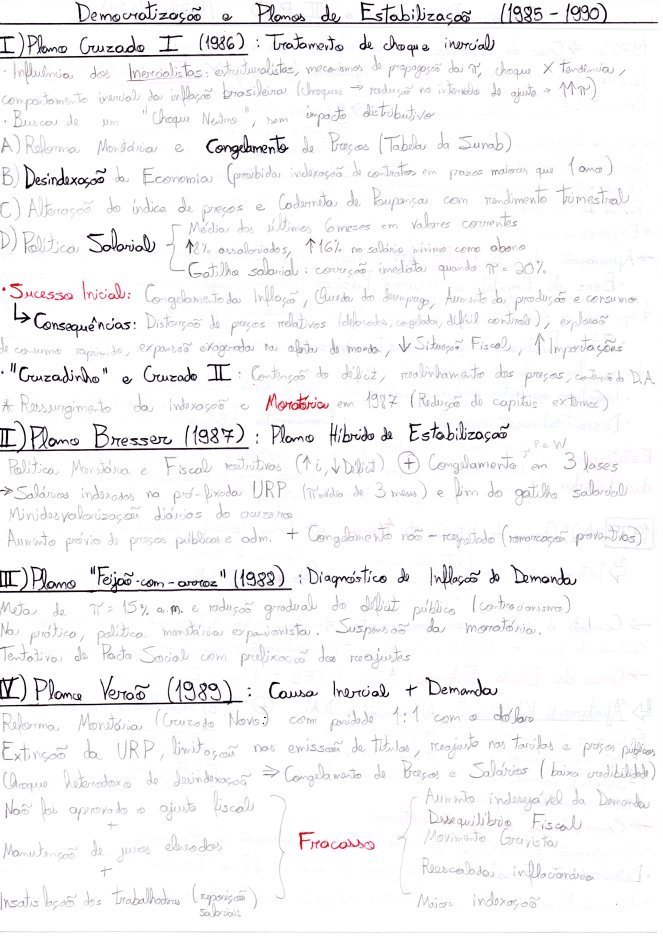 Democratização e Planos de Estabilização (1985 - 1990)
I) Plano Cruzado I (1986) : Tratamento de choque inercial
· Influência dos Inercialistas: estruturalistas, mecanismos de propagação da π, choque X Tendência,
comportamento inercial da inflação brasileira (choques → redução no intervalo de ajuste → ↑↑π)
· Busca de um "Choque Neutro", sem impacto distributivo
A) Reforma Monetária e Congelamento de Preços (Tabela da Sunab)
B) Desindexação da Economia (proibida indexação de contratos em prazos maiores que 1 ano)
C) Alteração do índice de preços e Caderneta de Poupança com rendimento trimestral
D) Política Salarial
Média dos últimos 6 meses em valores correntes
↑8% assalariados, ↑16% no salário mínimo como abono
Gatilho salarial: correção imediata quando π = 20%
· Sucesso Inicial: Congelamento da Inflação, Queda do desemprego, Aumento da produção e consumo
↳ Consequências: Distorção de preços relativos (defasados, congelados, difícil controle), explosão
de consumo reprimido, expansão exagerada na oferta de moeda, ↓ Situação Fiscal, ↑ Importações
· "Cruzadinho" e Cruzado II : Contenção do déficit, realinhamento dos preços, contenção do D.A.
* Ressurgimento da indexação e Moratória em 1987 (Redução de capitais externos)
II) Plano Bresser (1987) : Plano Híbrido de Estabilização
Política Monetária e Fiscal restritivas (↑i, ↓Déficit) + Congelamento P e W em 3 fases
→ Salários indexados na pré-fixada URP (π média de 3 meses) e fim do gatilho salarial
Minidesvalorizações diárias do cruzado
Aumento prévio de preços públicos e adm. + Congelamento não - respeitado (remarcação preventivas)
III) Plano "Feijão-com-arroz" (1988) : Diagnóstico de Inflação de Demanda
Meta de π = 15% a.m. e redução gradual do déficit público
Na prática, política monetária expansionista. Suspensão da moratória.
Tentativa de Pacto Social com prefixação dos reajustes
IV) Plano Verão (1989) : Causa Inercial + Demanda
Reforma Monetária (Cruzado Novo) com paridade 1:1 com o dólar
Extinção da URP, limitação nas emissão de títulos, reajuste nas tarifas e preços públicos
Choque heterodoxo de desindexação ⇒ Congelamento de Preços e Salários (baixa credibilidade)
Não foi aprovado o ajuste fiscal
+
Manutenção de juros elevados
+
Insatisfação dos trabalhadores (reposição salariais)
Fracasso
Aumento indesejável da Demanda
Desequilíbrio Fiscal
Movimento Grevista
Reescalada inflacionária
Maior indexação